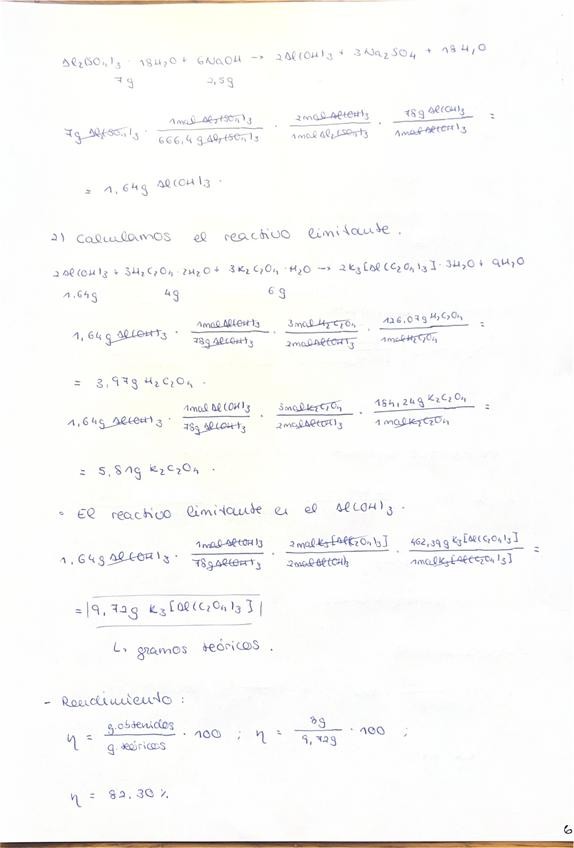 Al₂(SO₄)₃ · 18H₂O + 6NaOH → 2Al(OH)₃ + 3Na₂SO₄ + 18H₂O
7g 2,5g
7g Al₂(SO₄)₃ · 1mol Al₂(SO₄)₃ / 666,4 g Al₂(SO₄)₃ · 2mol Al(OH)₃ / 1mol Al₂(SO₄)₃ · 78g Al(OH)₃ / 1mol Al(OH)₃ =
= 1,64g Al(OH)₃ .
2) Calculamos el reactivo limitante.
2Al(OH)₃ + 3H₂C₂O₄ · 2H₂O + 3K₂C₂O₄ · H₂O → 2K₃[Al(C₂O₄)₃] · 3H₂O + 9H₂O
1,64g 4g 6g
1,64g Al(OH)₃ · 1mol Al(OH)₃ / 78g Al(OH)₃ · 3mol H₂C₂O₄ / 2mol Al(OH)₃ · 126,07g H₂C₂O₄ / 1mol H₂C₂O₄ =
= 3,97g H₂C₂O₄ .
1,64g Al(OH)₃ · 1mol Al(OH)₃ / 78g Al(OH)₃ · 3mol K₂C₂O₄ / 2mol Al(OH)₃ · 184,24g K₂C₂O₄ / 1mol K₂C₂O₄ =
= 5,81g K₂C₂O₄ .
◦ El reactivo limitante es el Al(OH)₃ .
1,64g Al(OH)₃ · 1mol Al(OH)₃ / 78g Al(OH)₃ · 2mol K₃[Al(C₂O₄)₃] / 2mol Al(OH)₃ · 462,39g K₃[Al(C₂O₄)₃] / 1mol K₃[Al(C₂O₄)₃] =
= |9,72g K₃[Al(C₂O₄)₃]|
↳ gramos teóricos .
- Rendimiento :
η = g.obtenidos / g.teóricos · 100 ; η = 8g / 9,72g · 100 ;
η = 82.30 %.
6